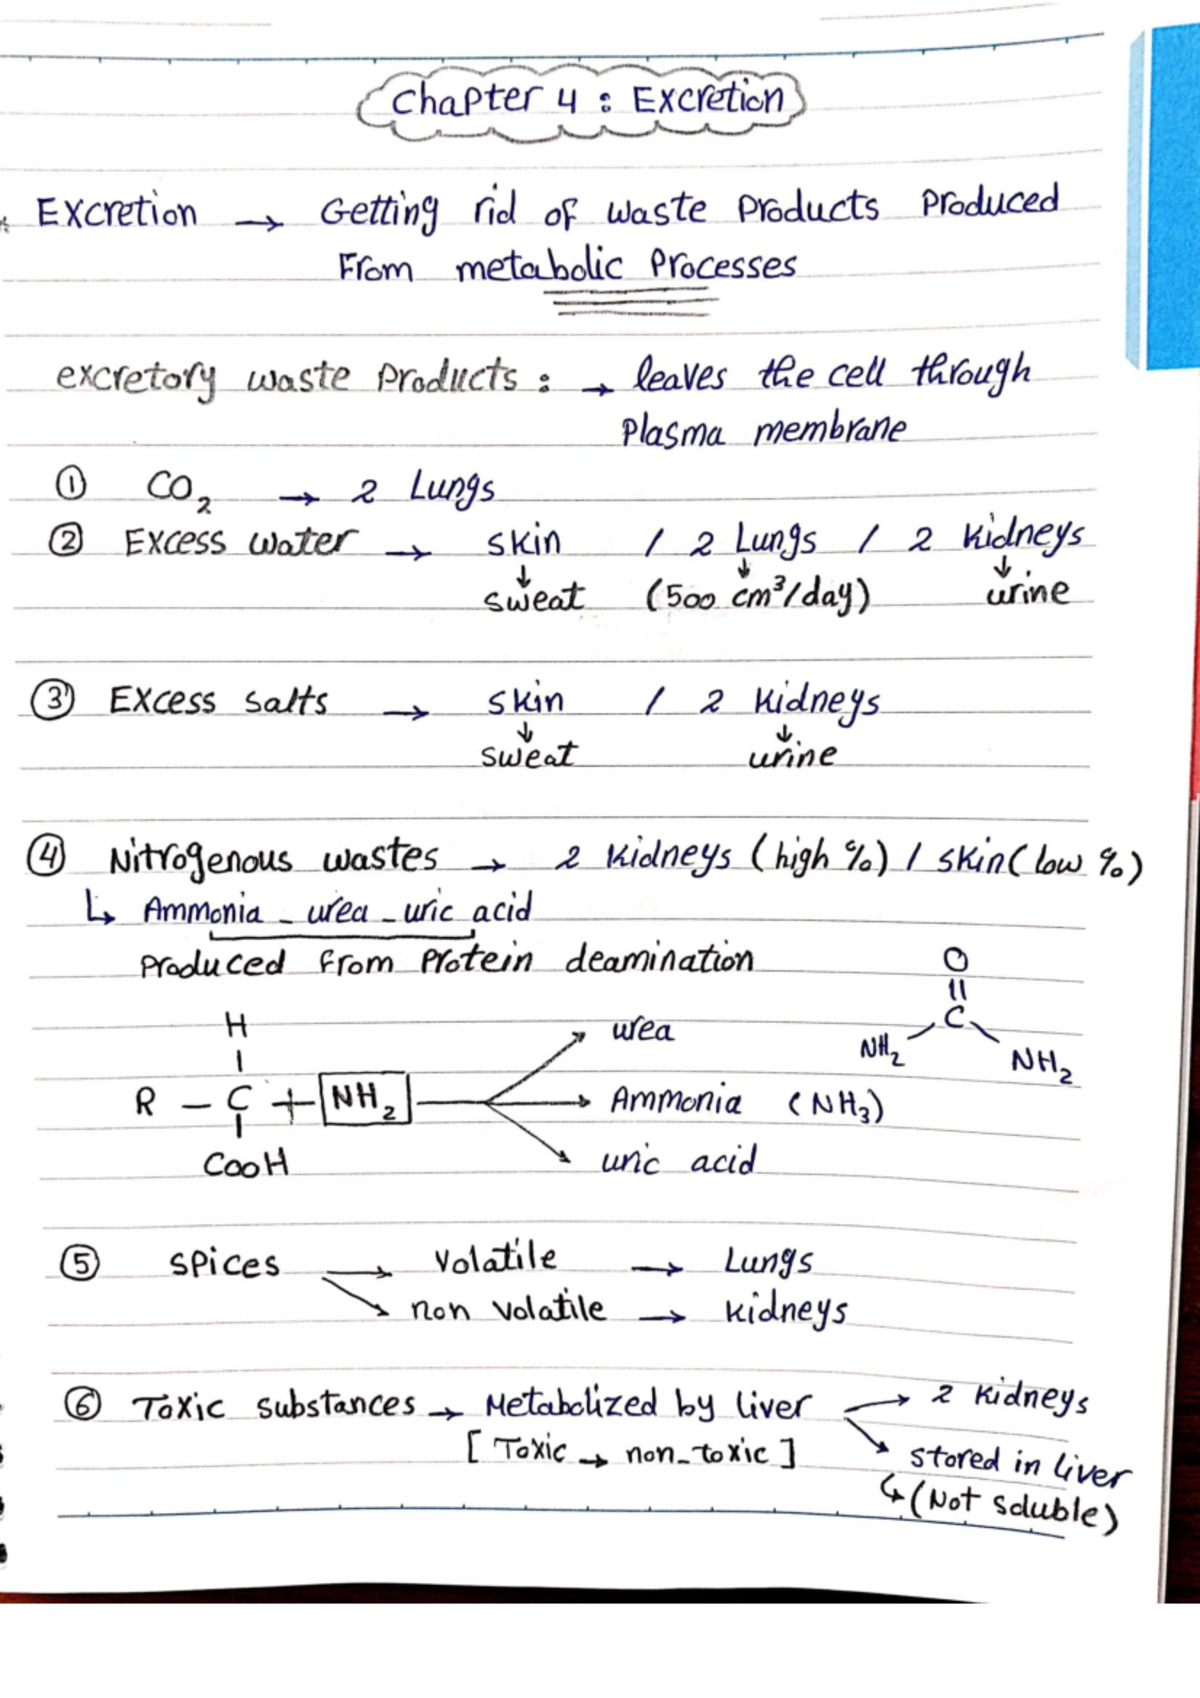 Chapter 4 : Excretion
* Excretion → Getting rid of waste Products Produced
From metabolic Processes
excretory waste Products : → leaves the cell through
Plasma membrane
① CO2 → 2 Lungs
② Excess water → skin / 2 Lungs / 2 kidneys
↓ ↓ ↓
sweat (500 cm³/day) urine
③ Excess salts → skin / 2 kidneys
↓ ↓
sweat urine
④ Nitrogenous wastes → 2 kidneys (high %) / skin (low %)
↳ Ammonia - urea - uric acid
Produced from Protein deamination
O
||
H urea C
| NH2 NH2
R - C + NH2 → Ammonia (NH3)
|
COOH uric acid
⑤ spices → volatile → Lungs
→ non volatile → kidneys
⑥ Toxic substances → Metabolized by liver → 2 kidneys
[Toxic → non-toxic] → stored in liver
↳ (Not soluble)